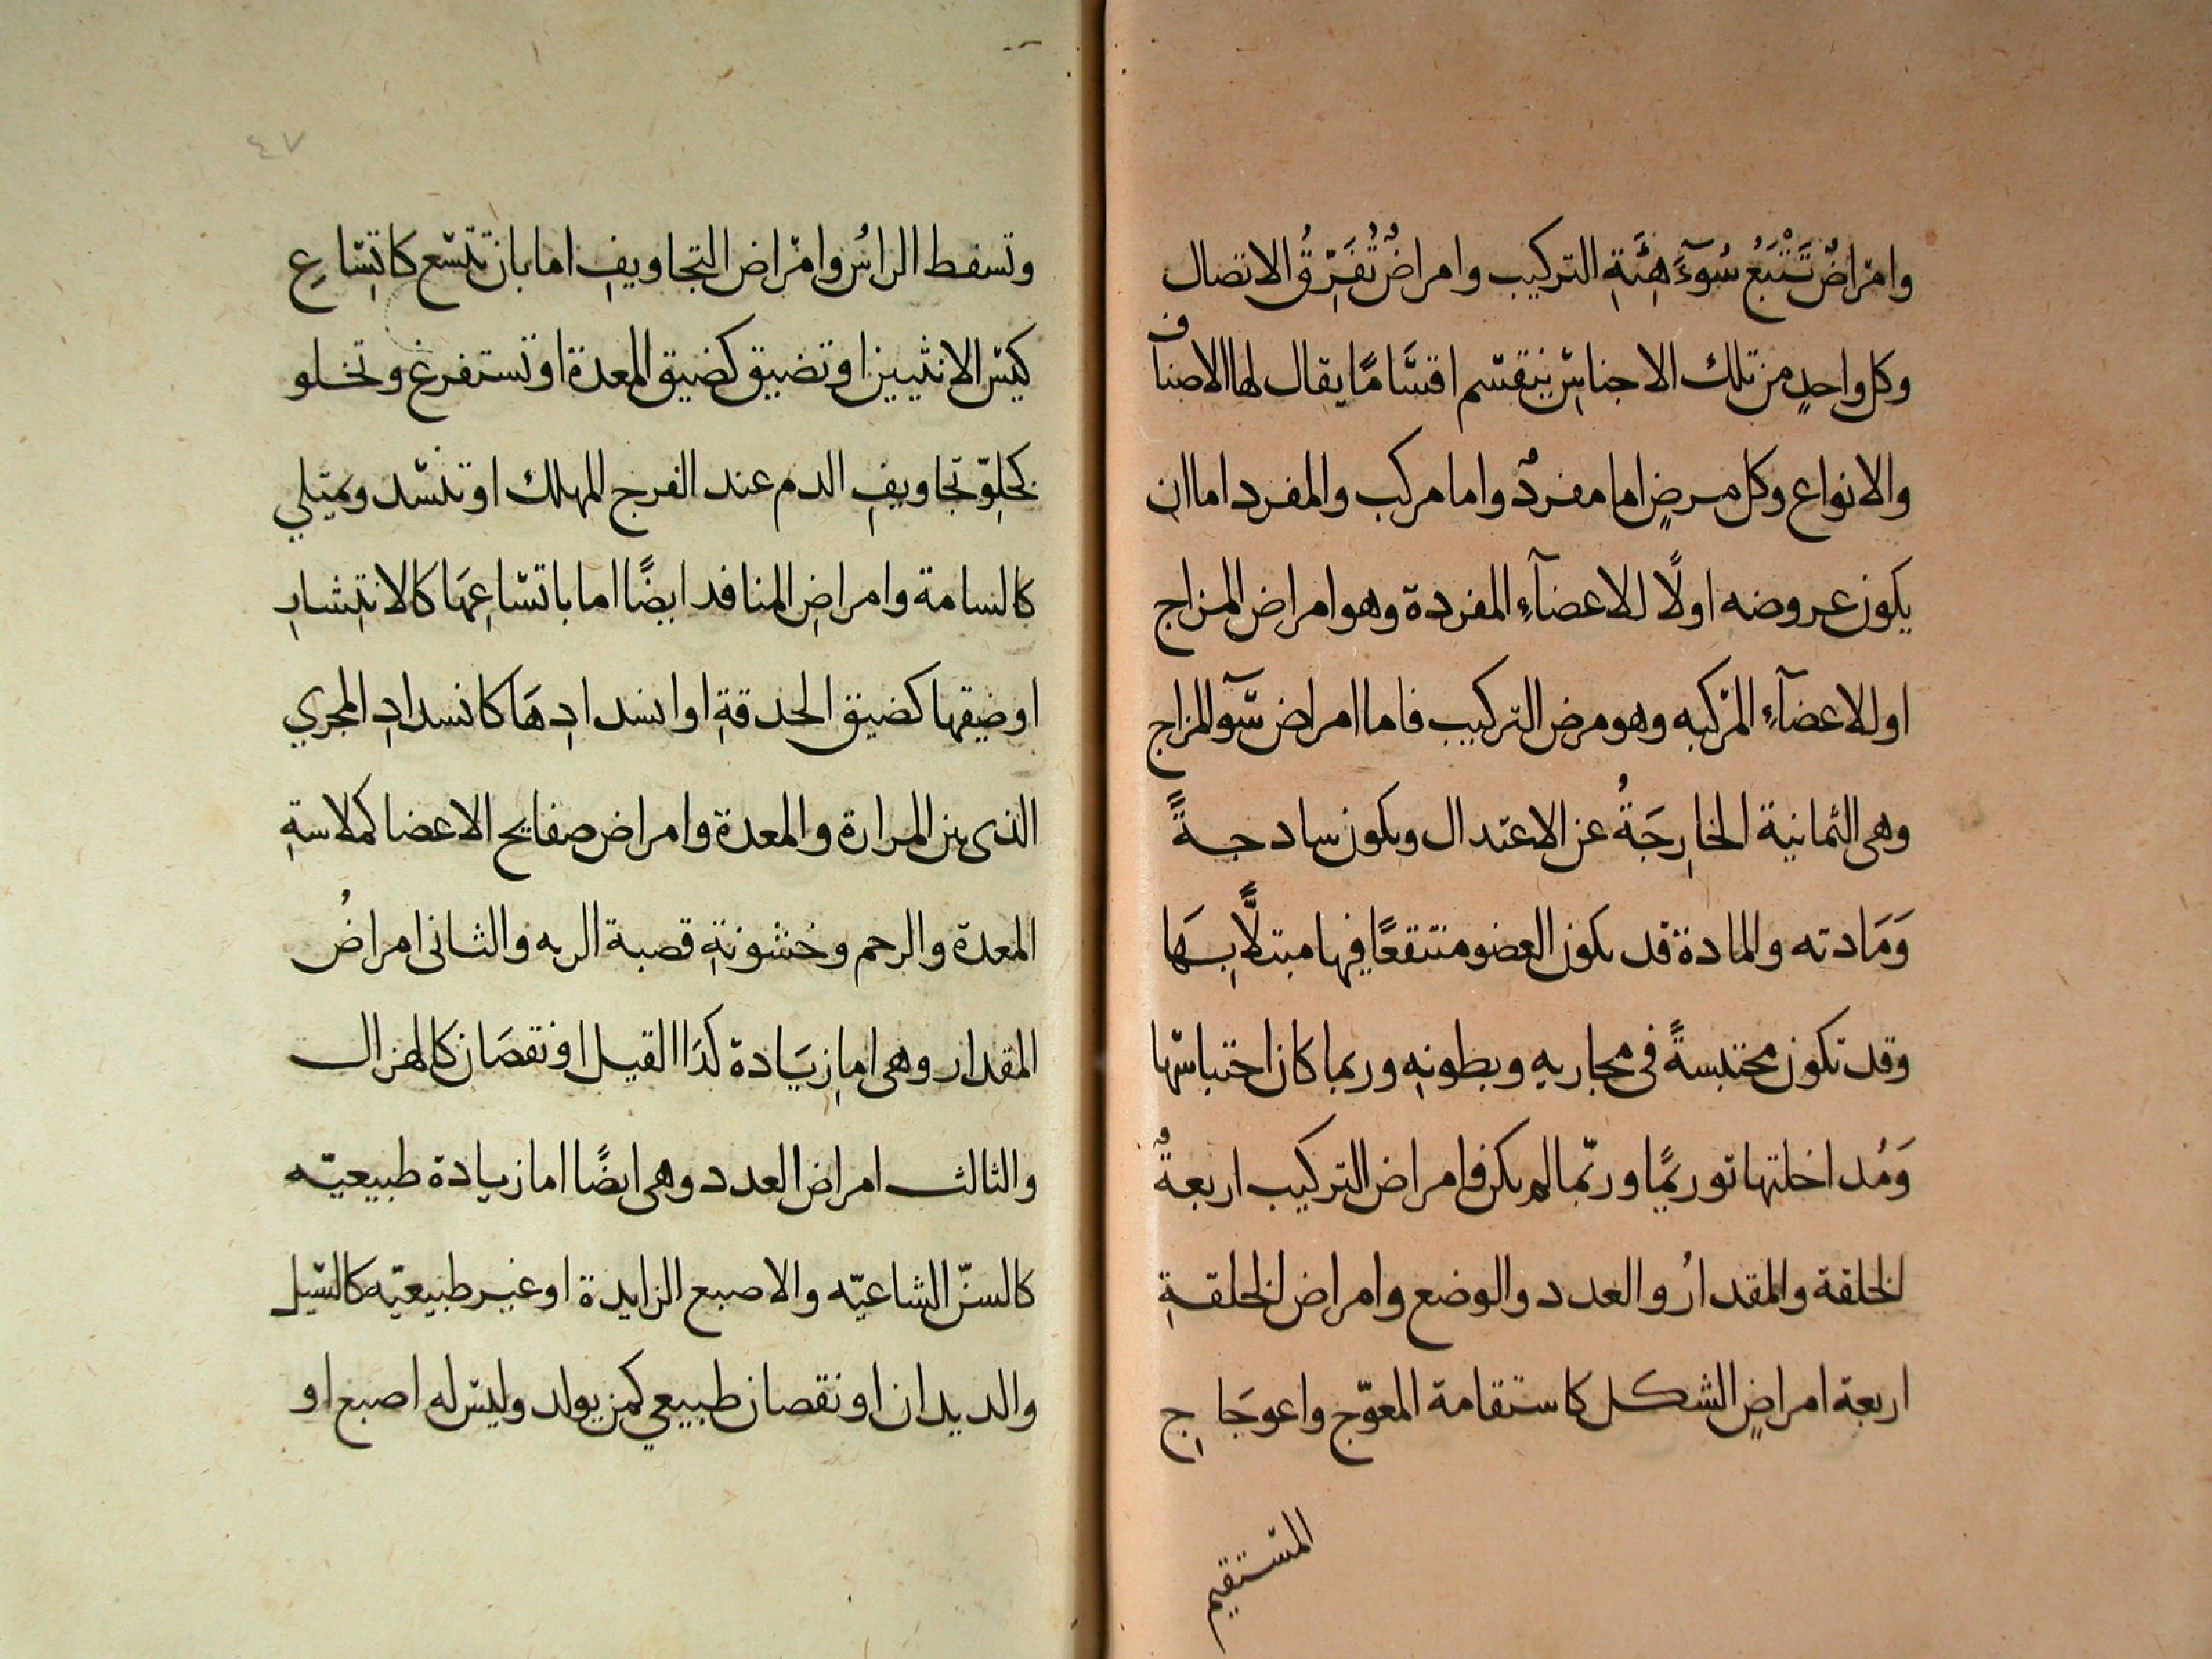 وامراضٌ تَتْبَعُ سُوٓءَ هَيْئَةِ التركيب وامراضٌ تُفَرِّقُ الاتصال
وكل واحدٍ من تلك الاجناس ينقسم اقسَامًا يقال لها الاصناف
والانواع وكل مرضٍ اما مفردٌ واما مركب والمفرد اما ان
يكون عروضه اولًا للاعضآءِ المفردة وهو امراض المزاج
او للاعضآءِ المركبه وهو مرض التركيب فاما امراض سوٓ المزاج
وهى الثمانية الخارِجَةُ عن الاعتدال ويكون سادجةً
وَمَادته والمادة قد يكون العضو منتقعًا فيها مبتلًّا بِهَا
وقد تكون محتبسةً فى مجاريهِ وبطونهِ وربما كان احتباسها
وَمُداخلتها توريمًا وربّما لم يكن فامراض التركيب اربعةٌ
الخلقة والمقدارُ والعدد والوضع وامراض الخلقةِ
اربعة امراضٍ الشكل كاستقامة المعوّج واعوجَاجِ
المستقيم
٤٧
وتسفط الراسُ وامراض التجاويفِ اما بان تتسع كاتِسَاعِ
كيس الانثيين او تضيق كضيق المعدة او تستفرغ وتخلو
كخلوّ تجاويفِ الدم عند الفرح المهلك او تنسد وتمتلي
كالسامة وامراضِ المنافد ايضًا اما باتساعِهَا كالانتِشارِ
او ضيقها كضيق الحدقةِ او انسدادِهَا كانسدادِ المجري
الذى بين المرارة والمعدة وامراض صفايح الاعضا كملاسةِ
المعدة والرحم وخشونةِ قصبة الريه والثانى امراضُ
المقدار وهى اما زِيَادة كدَاالفيل او نقصَان كالهزال
والثالث امراض العدد وهى ايضًا اما زيادة طبيعيّه
كالسنّ الشاغيّه والاصبع الزايدة او غير طبيعيّه كالسّيل
والديدان او نقصان طبيعي كمن يولد وليس له اصبع او